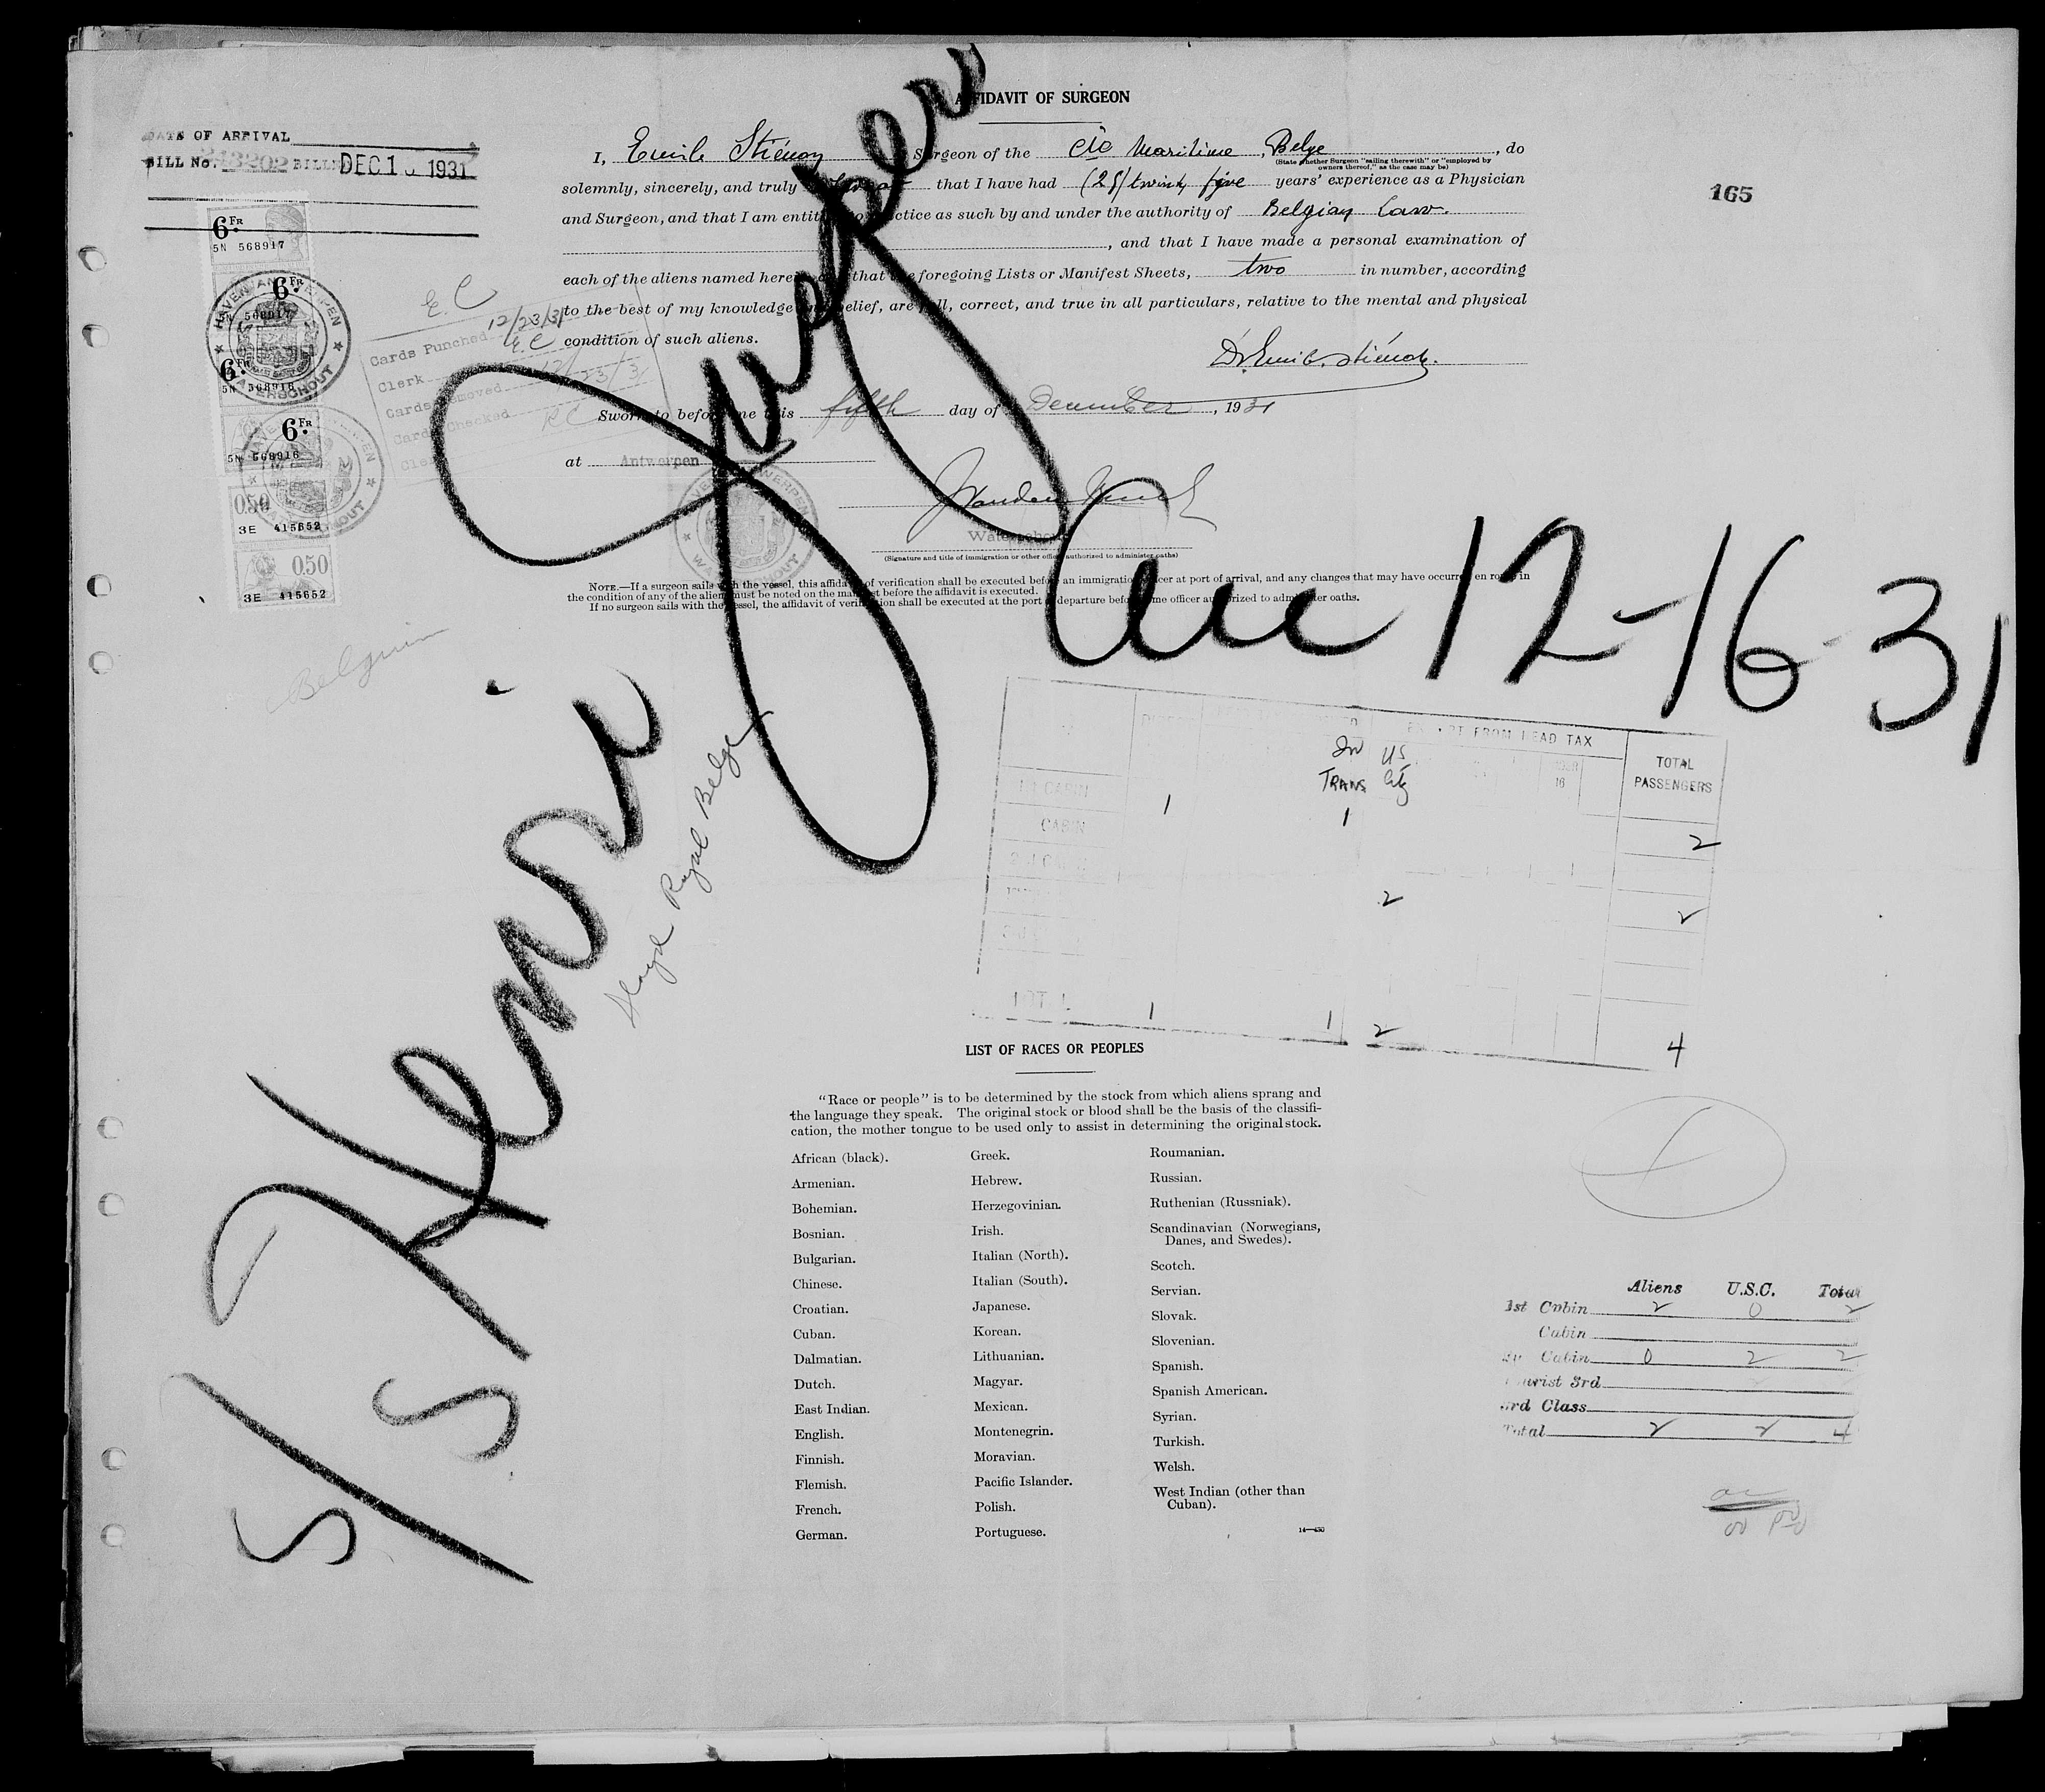 AFFIDAVIT OF SURGEON
DATE OF ARRIVAL
BILL No. BILL DEC 1 1931
165
I, Emile Stiénon Surgeon of the Cie Maritime Belge, do
(State whether Surgeon "sailing therewith" or "employed by owners thereof," as the case may be)
solemnly, sincerely, and truly that I have had (25) twenty five years' experience as a Physician
and Surgeon, and that I am entitled to practice as such by and under the authority of Belgian Law.
, and that I have made a personal examination of
each of the aliens named herein, and that the foregoing Lists or Manifest Sheets, two in number, according
to the best of my knowledge and belief, are full, correct, and true in all particulars, relative to the mental and physical
condition of such aliens.
Dr. Emile Stiénon.
Sworn to before me this fifth day of December, 1931
at Antwerpen
(Signature and title of immigration or other officer authorized to administer oaths)
NOTE.—If a surgeon sails with the vessel, this affidavit of verification shall be executed before an immigration officer at port of arrival, and any changes that may have occurred en route in
the condition of any of the aliens must be noted on the manifest before the affidavit is executed.
If no surgeon sails with the vessel, the affidavit of verification shall be executed at the port of departure before some officer authorized to administer oaths.
6 FR
5N 568917
6 FR
5N 568917
6 FR
5N 568916
6 FR
5N 568916
0.50
3E 415652
0.50
3E 415652
HAVEN VAN ANTWERPEN
WATERSCHOUT
E.C
Cards Punched 12/23/31
Clerk E.C
Cards Removed 12/23/31
Cards Checked RC
Clerk
Belgium
S/S Henri Jaspar
Arr 12-16-31
Lloyd Royal Belge
EXEMPT FROM HEAD TAX
TOTAL PASSENGERS
In Trans US Cit
1st CABIN
CABIN 1 1 2
2 2
TOTAL 1 1 2 4
LIST OF RACES OR PEOPLES
"Race or people" is to be determined by the stock from which aliens sprang and
the language they speak. The original stock or blood shall be the basis of the classifi-
cation, the mother tongue to be used only to assist in determining the original stock.
African (black).
Armenian.
Bohemian.
Bosnian.
Bulgarian.
Chinese.
Croatian.
Cuban.
Dalmatian.
Dutch.
East Indian.
English.
Finnish.
Flemish.
French.
German.
Greek.
Hebrew.
Herzegovinian.
Irish.
Italian (North).
Italian (South).
Japanese.
Korean.
Lithuanian.
Magyar.
Mexican.
Montenegrin.
Moravian.
Pacific Islander.
Polish.
Portuguese.
Roumanian.
Russian.
Ruthenian (Russniak).
Scandinavian (Norwegians,
Danes, and Swedes).
Scotch.
Servian.
Slovak.
Slovenian.
Spanish.
Spanish American.
Syrian.
Turkish.
Welsh.
West Indian (other than
Cuban).
Aliens U.S.C. Total
1st Cabin 2 0 2
Cabin
Cabin 0 2 2
Tourist 3rd
3rd Class
Total 2 2 4